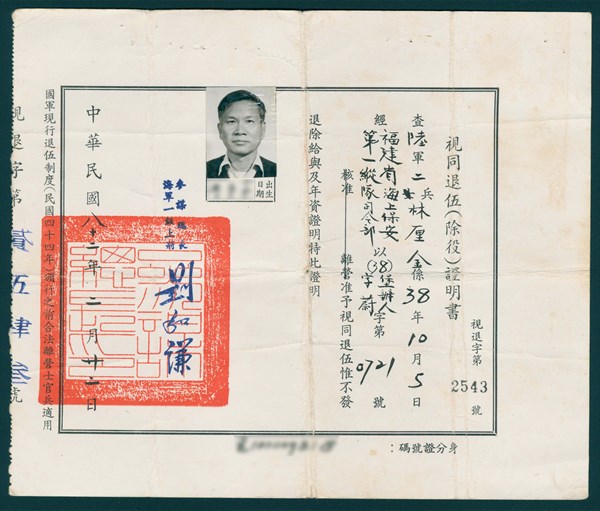 視同退伍(除役)證明書
視退字第 2543 號
查陸軍二兵林厘金係38年10月5日
經福建省海上保安
第一縱隊司令部以(38)字第0721號
核准 離營准予視同退伍惟不發
退除給與及年資證明特此證明
出生日期
參謀總長
海軍一級上將
劉和謙
中華民國八十二年二月廿二日
國軍現行退伍制度(民國四十四年)頒行之前合法離營士官兵適用
視退字第貳伍肆叁號
身分證號碼: